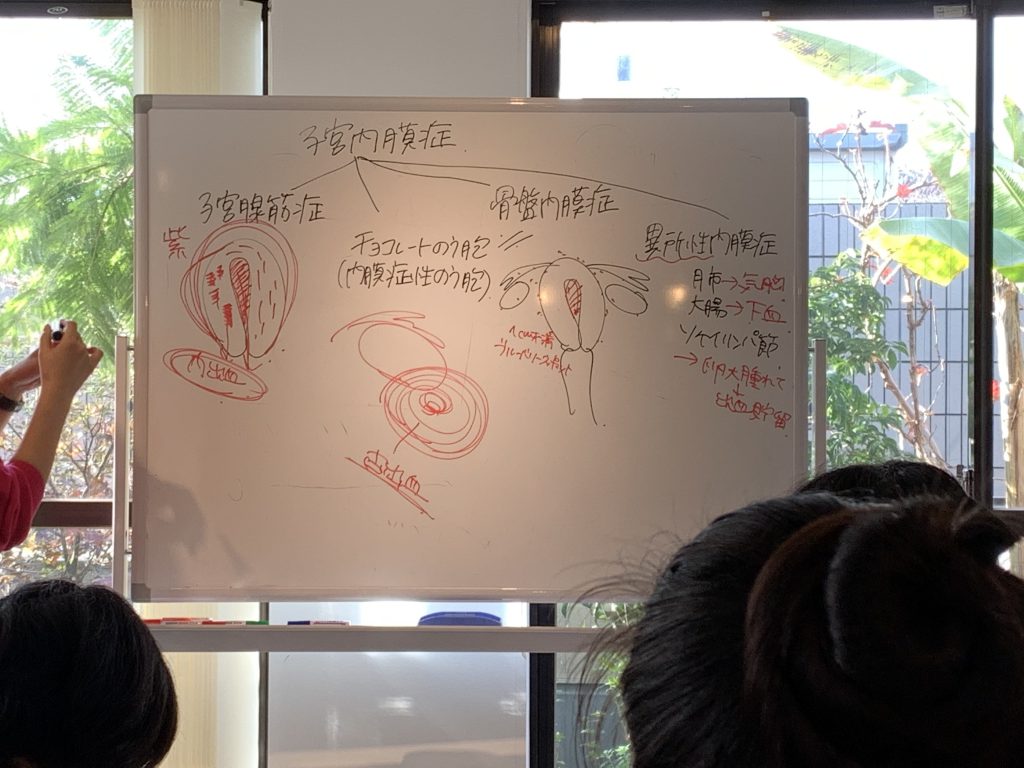 子宮内膜症
子宮腺筋症
紫
内出血
チョコレートのう胞
(内膜症性のう胞)
古出血
骨盤内膜症
1cm未満
ブルーベリースポット
異所性内膜症
肺→気胸
大腸→下血
ソケイリンパ節
→卵大腫れて
出血貯留